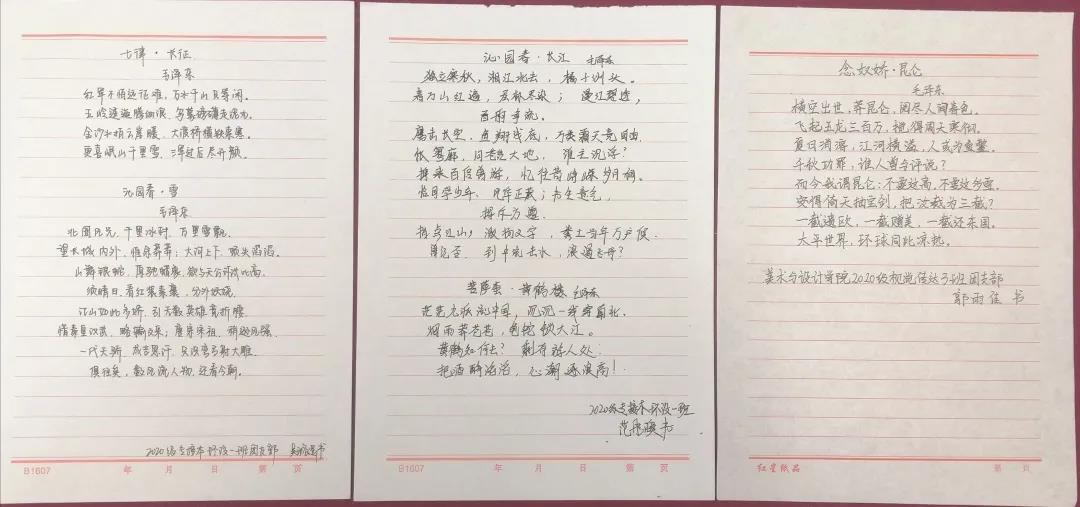 七律·长征
毛泽东
红军不怕远征难，万水千山只等闲。
五岭逶迤腾细浪，乌蒙磅礴走泥丸。
金沙水拍云崖暖，大渡桥横铁索寒。
更喜岷山千里雪，三军过后尽开颜。
沁园春·雪
毛泽东
北国风光，千里冰封，万里雪飘。
望长城内外，惟余莽莽；大河上下，顿失滔滔。
山舞银蛇，原驰蜡象，欲与天公试比高。
须晴日，看红装素裹，分外妖娆。
江山如此多娇，引无数英雄竞折腰。
惜秦皇汉武，略输文采；唐宗宋祖，稍逊风骚。
一代天骄，成吉思汗，只识弯弓射大雕。
俱往矣，数风流人物，还看今朝。
2020级专接本环设一班团支部
B1607 年 月 日 第 页
沁园春·长江 毛泽东
独立寒秋，湘江北去，橘子洲头。
看万山红遍，层林尽染；漫江碧透，
百舸争流。
鹰击长空，鱼翔浅底，万类霜天竞自由。
怅寥廓，问苍茫大地，谁主沉浮？
携来百侣曾游，忆往昔峥嵘岁月稠。
恰同学少年，风华正茂；书生意气，
挥斥方遒。
指点江山，激扬文字，粪土当年万户侯。
曾记否，到中流击水，浪遏飞舟？
菩萨蛮·黄鹤楼 毛泽东
茫茫九派流中国，沉沉一线穿南北。
烟雨莽苍苍，龟蛇锁大江。
黄鹤知何去？剩有游人处。
把酒酹滔滔，心潮逐浪高！
2020级专接本环设一班
范 书
B1607 年 月 日 第 页
念奴娇·昆仑
毛泽东
横空出世，莽昆仑，阅尽人间春色。
飞起玉龙三百万，搅得周天寒彻。
夏日消溶，江河横溢，人或为鱼鳖。
千秋功罪，谁人曾与评说？
而今我谓昆仑：不要这高，不要这多雪。
安得倚天抽宝剑，把汝裁为三截？
一截遗欧，一截赠美，一截还东国。
太平世界，环球同此凉热。
美术与设计学院2020级视觉传达3班团支部
郭雨佳 书
红星纸品 第 页